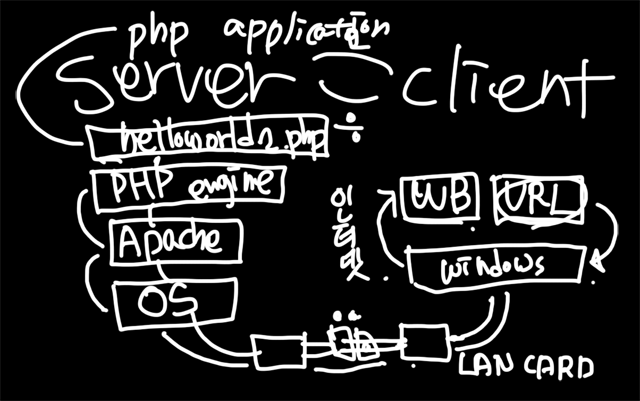 php application
Server – client
helloworld2.php
PHP engine
Apache
OS
인터넷
WB URL
windows
LAN CARD